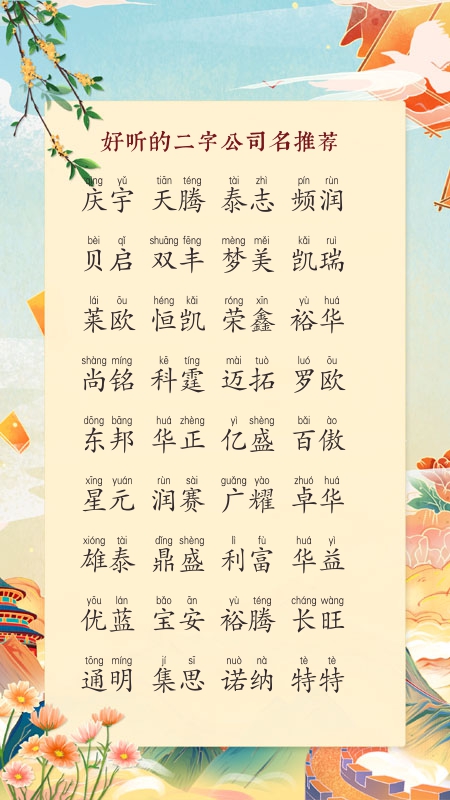 好听的二字公司名推荐
qìng yǔ tiān téng tài zhì pín rùn
庆宇 天腾 泰志 频润
bèi qǐ shuāng fēng mèng měi kǎi ruì
贝启 双丰 梦美 凯瑞
lái ōu héng kǎi róng xīn yù huá
莱欧 恒凯 荣鑫 裕华
shàng míng kē tíng mài tuò luó ōu
尚铭 科霆 迈拓 罗欧
dōng bāng huá zhèng yì shèng bǎi ào
东邦 华正 亿盛 百傲
xīng yuán rùn sài guǎng yào zhuó huá
星元 润赛 广耀 卓华
xióng tài dǐng shèng lì fù huá yì
雄泰 鼎盛 利富 华益
yōu lán bǎo ān yù téng cháng wàng
优蓝 宝安 裕腾 长旺
tōng míng jí sī nuò nà tè tè
通明 集思 诺纳 特特